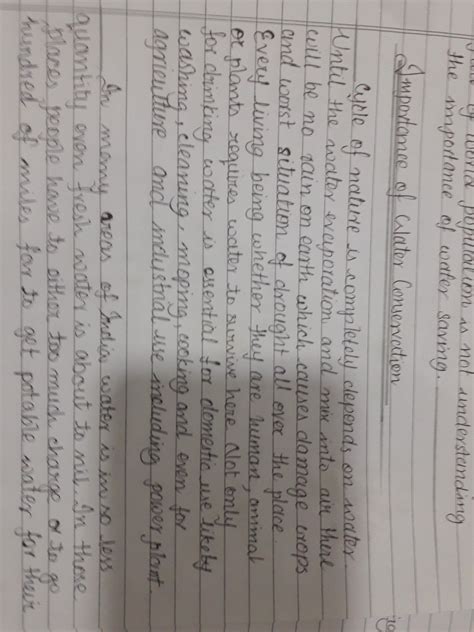 is not understanding
the importance of water saving.
Importance of Water Conservation
Cycle of nature is completely depends on water.
Until the water evaporation and mix into air there
will be no rain on earth which causes damage crops
and worst situation of drought all over the place.
Every living being whether they are human, animal
or plants requires water to survive here. Not only
for drinking water is essential for domestic use likely
washing, cleaning, moping, cooking and even for
agriculture and industrial use including power plant.
In many areas of India water is in so less
quantity even fresh water is about to nil. In those
places people have to either too much charge or to go
hundred of miles for to get potable water for their